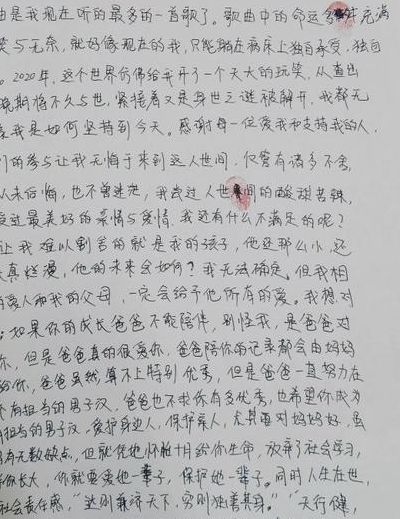 由是我现在听的最多的一首歌了。歌曲中的命运充满
笑与无奈,就好像现在的我,只能躺在病床上独自承受,独自
。2020年,这个世界仿佛给我开了一个天大的玩笑,从查出
晚期将不久与世,紧接着又是身世之谜被解开,我都无
我是如何坚持到今天。感谢每一位爱我和支持我的人,
们的参与让我无悔于来到这人世间,仅管有诸多不舍,
从未后悔,也不曾迷茫,我尝过人世间的酸甜苦辣,
受过最美好的亲情与爱情,我还有什么不满足的呢?
让我难以割舍的就是我的孩子,他还那么小,还
天真烂漫,他的未来会如何?我无法确定,但我相
爱人和我的父母,一定会给予他所有的爱。我想对
:如果你的成长爸爸不能陪伴,别怪我,是爸爸对
你,但是爸爸真的很爱你,爸爸陪你的记录都会由妈妈
给你,爸爸虽然算不上特别优秀,但是爸爸一直努力在
有担当的男子汉,爸爸也不求你有多优秀,也希望你成为
有担当的男子汉,爱护身边人,保护亲人,尤其要对妈妈好,虽
有无数缺点,但就凭她怀胎十月给你生命,放弃了社会学习,
你长大,你就要爱她一辈子,保护她一辈子。同时人生在世,
社会责任感,“达则兼济天下,穷则独善其身。”“天行健,